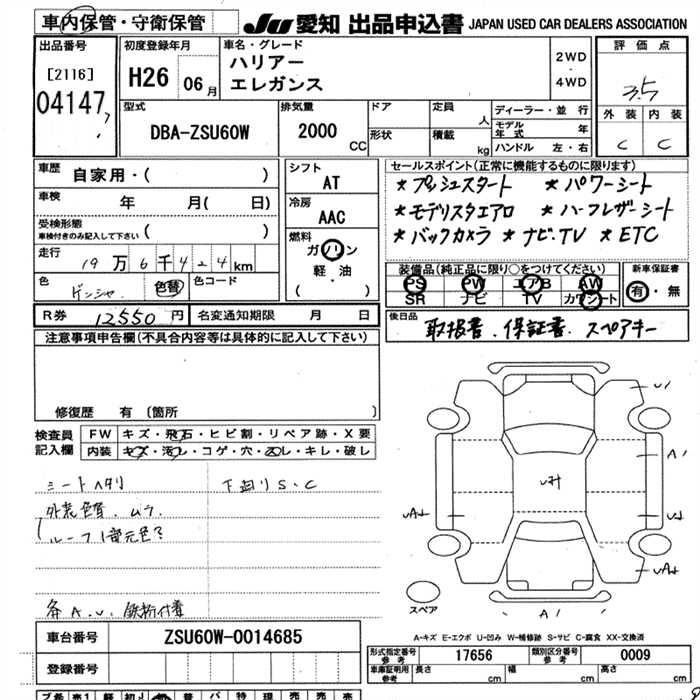 車内保管・守衛保管
JU 愛知 出品申込書 JAPAN USED CAR DEALERS ASSOCIATION
出品番号
[2116]
04147
初度登録年月
H26 06月
車名・グレード
ハリアー
エレガンス
2WD
・
4WD
評価点
3.5
外装 内装
C C
型式
DBA-ZSU60W
排気量
2000 CC
ドア
形状
定員 人
積載 kg
ディーラー・並行
モデル年式 年
ハンドル 左・右
車歴 自家用・( )
車検 年 月( 日)
受検形態
車検付きのみ記入して下さい ( )
走行 19万6千424km
色 色替 色コード
シフト
AT
冷房
AAC
燃料
ガソリン
軽・油
( )
セールスポイント(正常に機能するものに限ります)
★プッシュスタート ★パワーシート
★モデリスタエアロ ★ハーフレザーシート
★バックカメラ ★ナビ.TV ★ETC
装備品(純正品に限り○をつけてください)
PS PW エアB AW
SR ナビ TV カワシート
新車保証書
有・無
R券 12550円 名変通知期限 月 日
後日品
取扱書.保証書.スペアキー
注意事項申告欄(不具合内容等は具体的に記入して下さい)
修復歴 有 〔箇所 〕
検査員記入欄
FW キズ・飛石・ヒビ割・リペア跡・X要
内装 キズ・汚レ・コゲ・穴・スレ・キレ・破レ
シートヘタリ 下廻りS・C
外装色替.ムラ
ルーフ1部元色?
各A.U.鉄粉付着
U1
A1
UA1
U1
A1
スペア
A-キズ E-エクボ U-凹み W-補修跡 S-サビ C-腐食 XX-交換済
車台番号 ZSU60W-0014685
登録番号
形式指定番号 参考 17656
類別区分番号 参考 0009
車庫証明用 参考 長さ cm 幅 cm 高さ cm